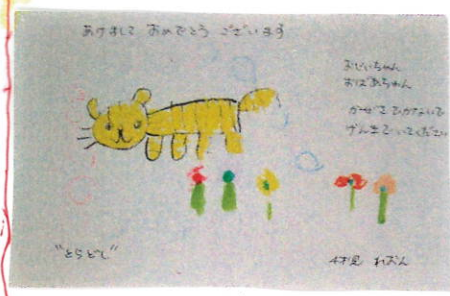 あけまして おめでとう ございます
おじいちゃん
おばあちゃん
かぜを ひかないで
げんきでいてください
"とらどし"
4才児 れおん